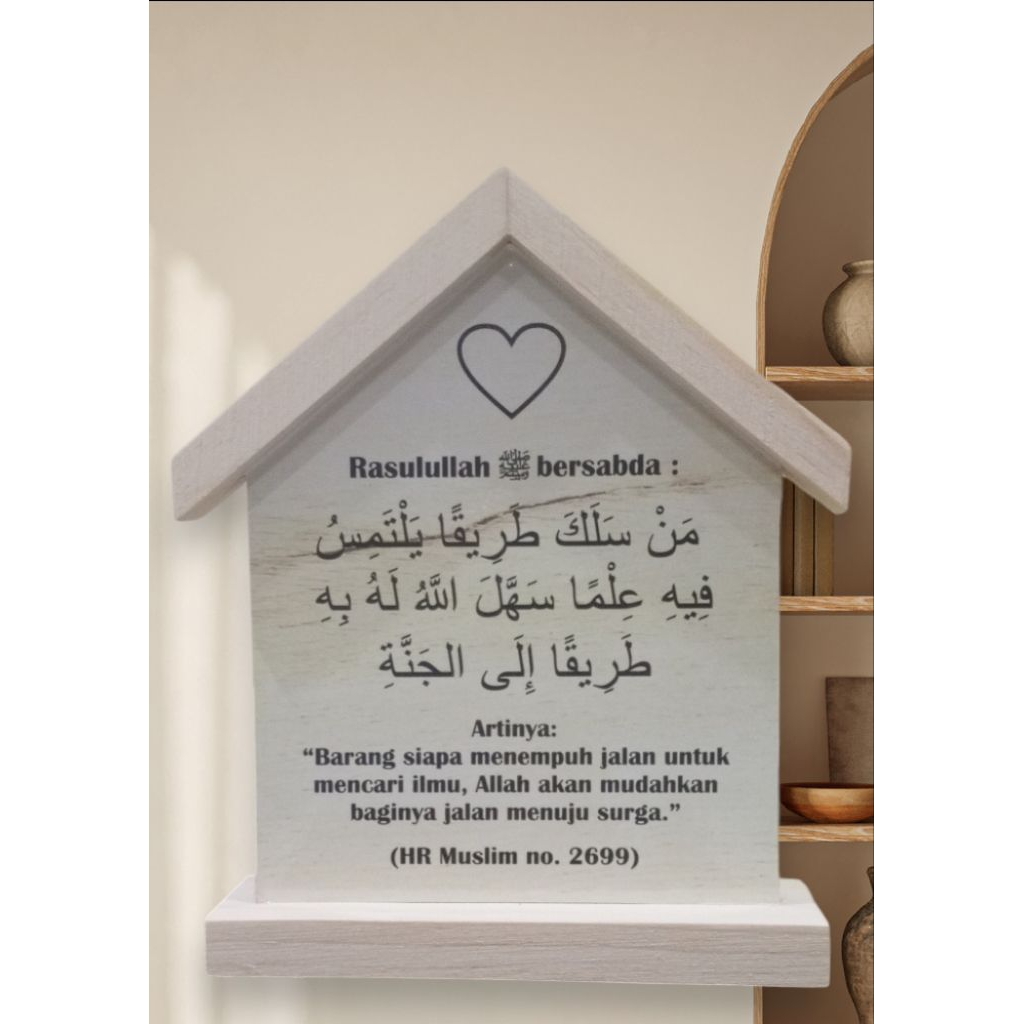 Rasulullah ﷺ bersabda :
مَنْ سَلَكَ طَرِيقًا يَلْتَمِسُ
فِيهِ عِلْمًا سَهَّلَ اللَّهُ لَهُ بِهِ
طَرِيقًا إِلَى الجَنَّةِ
Artinya:
“Barang siapa menempuh jalan untuk
mencari ilmu, Allah akan mudahkan
baginya jalan menuju surga.”
(HR Muslim no. 2699)